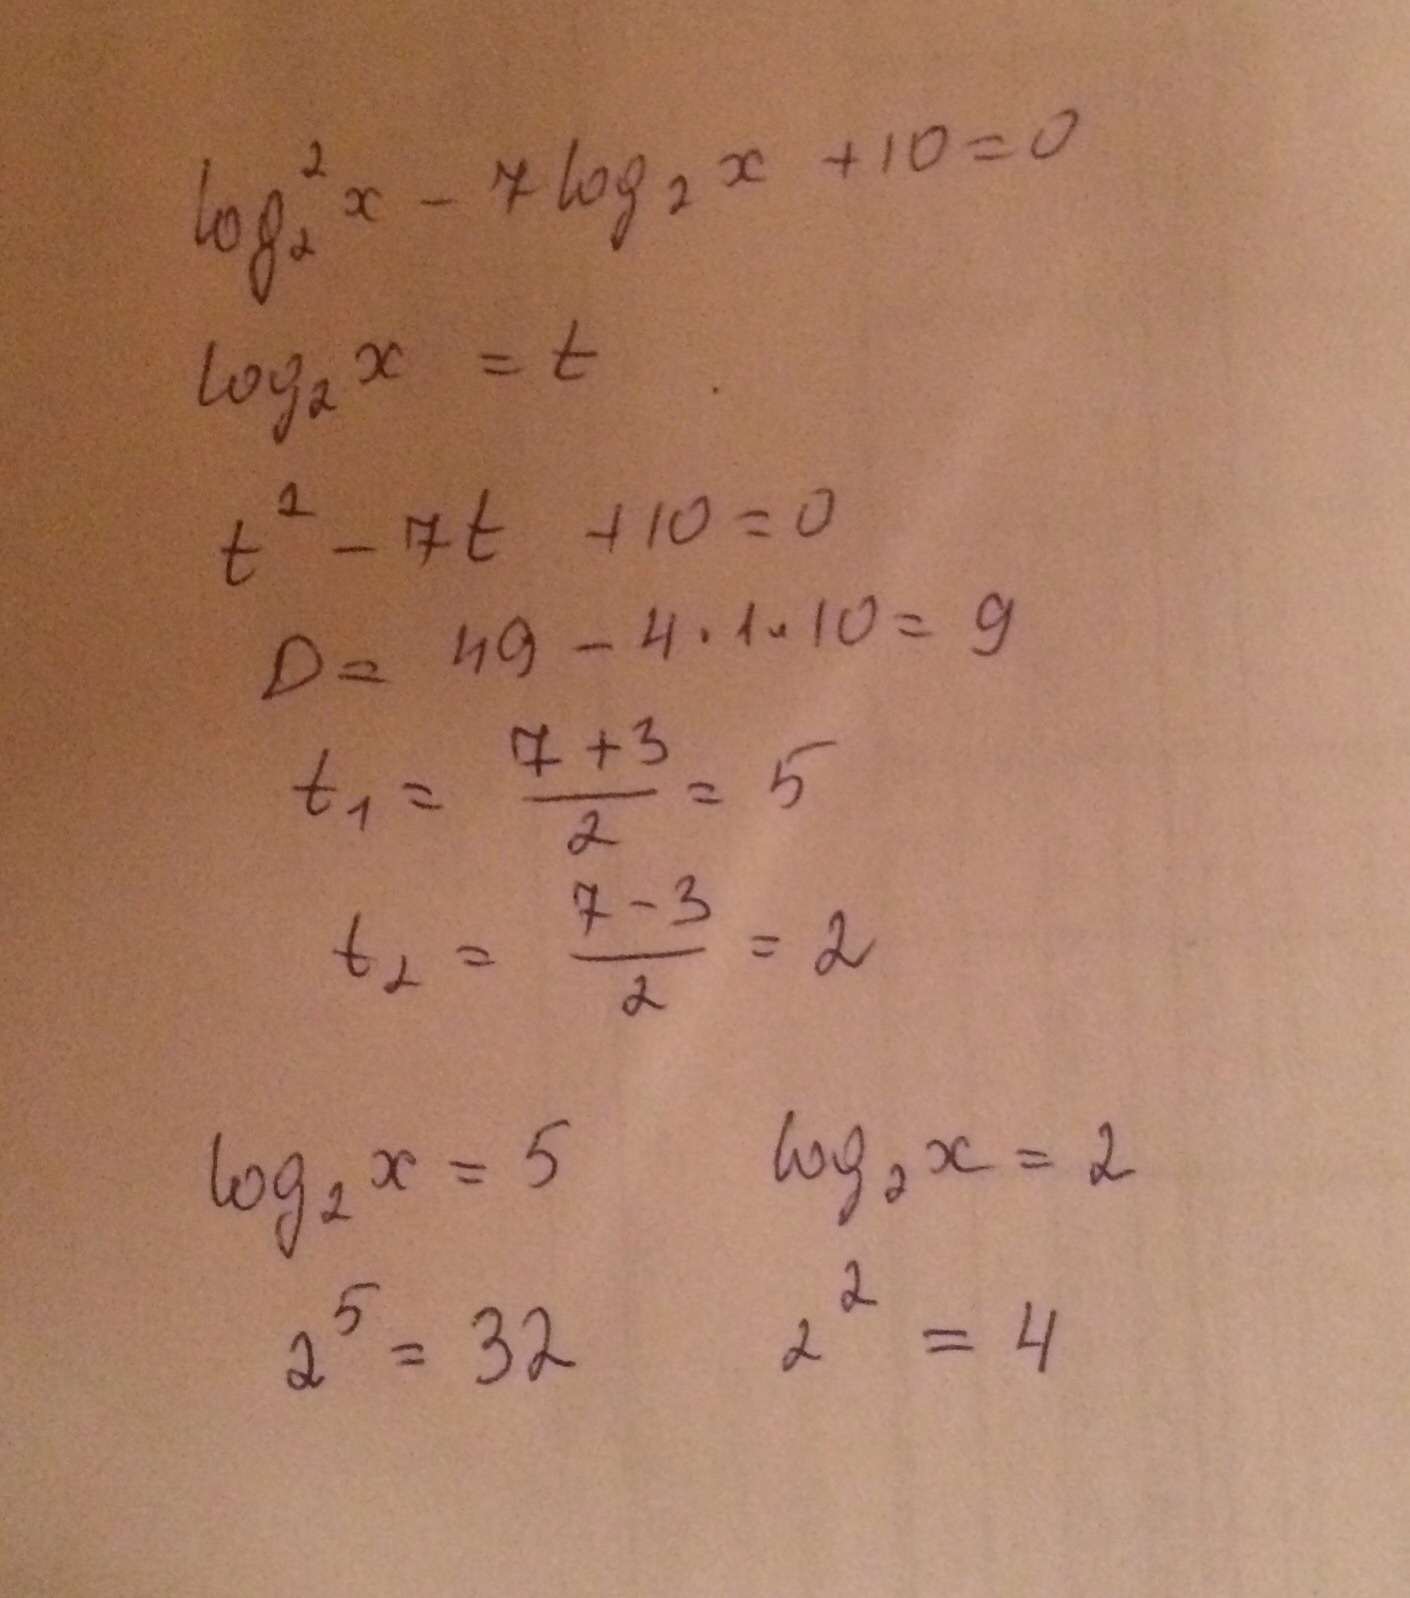 log₂²x − 7log₂x + 10 = 0
log₂x = t
t² − 7t + 10 = 0
D = 49 − 4·1·10 = 9
t₁ = (7+3)/2 = 5
t₂ = (7−3)/2 = 2
log₂x = 5 log₂x = 2
2⁵ = 32 2² = 4